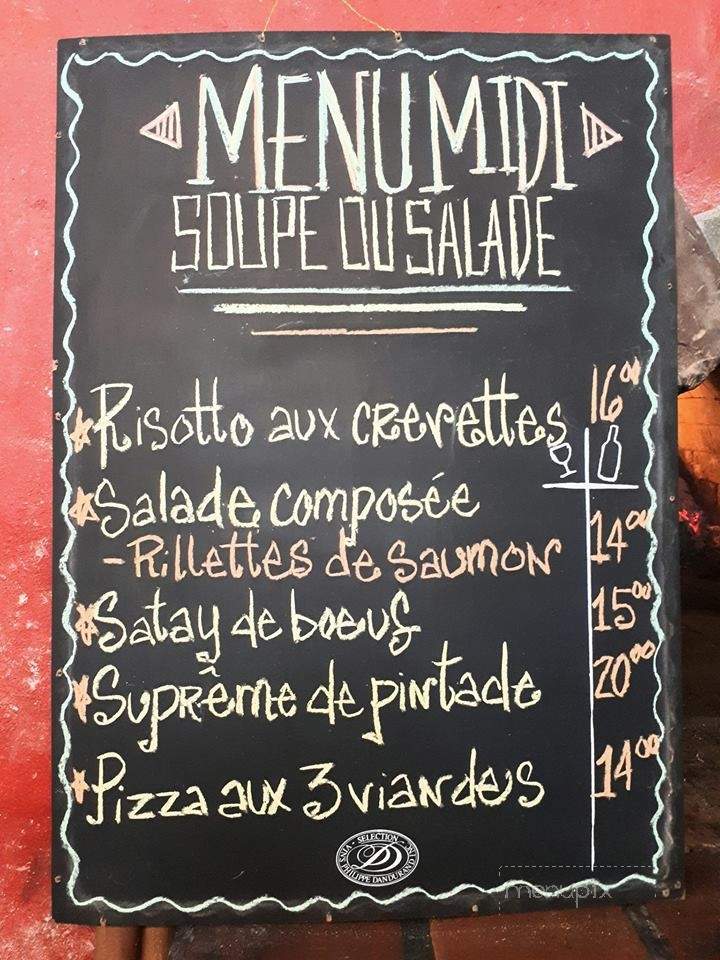 MENU MIDI
SOUPE OU SALADE
Risotto aux crevettes 16⁰⁰
Salade composée
- Rillettes de saumon 14⁰⁰
Satay de boeuf 15⁰⁰
Suprême de pintade 20⁰⁰
Pizza aux 3 viandes 14⁰⁰
SELECTION
VINS PHILIPPE DANDURAND
menupix